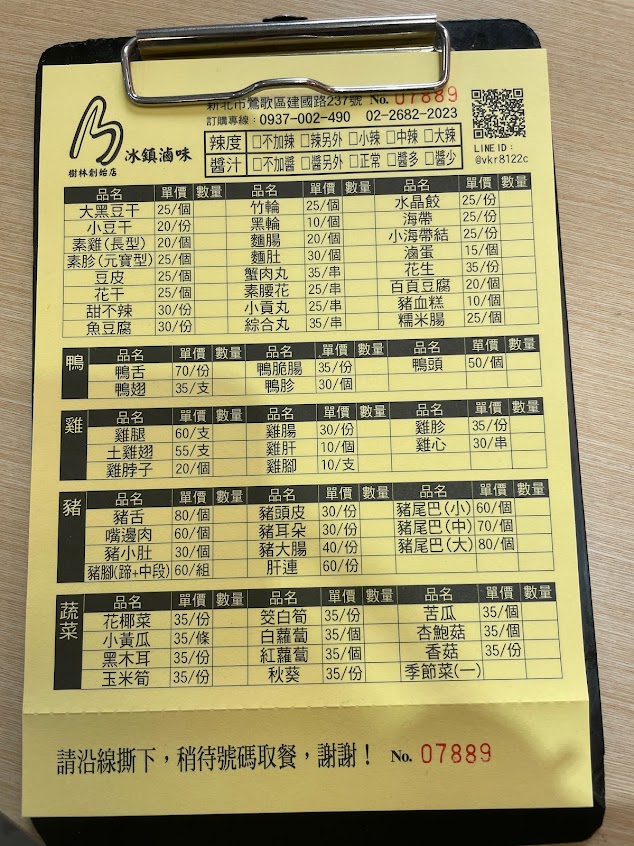 新北市鶯歌區建國路237號 No. 07889
訂購專線：0937-002-490 02-2682-2023
冰鎮滷味
樹林創始店
辣度 □不加辣 □辣另外 □小辣 □中辣 □大辣
醬汁 □不加醬 □醬另外 □正常 □醬多 □醬少
LINE ID：
@vkr8122c
品名 單價 數量 品名 單價 數量 品名 單價 數量
大黑豆干 25/個 竹輪 25/個 水晶餃 25/份
小豆干 20/份 黑輪 10/個 海帶 25/份
素雞(長型) 20/個 麵腸 20/個 小海帶結 25/份
素肫(元寶型) 25/個 麵肚 30/個 滷蛋 15/個
豆皮 25/個 蟹肉丸 35/串 花生 35/份
花干 25/個 素腰花 25/串 百頁豆腐 20/個
甜不辣 30/份 小貢丸 25/串 豬血糕 10/個
魚豆腐 30/份 綜合丸 35/串 糯米腸 25/個
鴨
品名 單價 數量 品名 單價 數量 品名 單價 數量
鴨舌 70/份 鴨脆腸 35/份 鴨頭 50/個
鴨翅 35/支 鴨胗 30/個
雞
品名 單價 數量 品名 單價 數量 品名 單價 數量
雞腿 60/支 雞腸 30/份 雞胗 35/份
土雞翅 55/支 雞肝 10/個 雞心 30/串
雞脖子 20/個 雞腳 10/支
豬
品名 單價 數量 品名 單價 數量 品名 單價 數量
豬舌 80/個 豬頭皮 30/份 豬尾巴(小) 60/個
嘴邊肉 60/個 豬耳朵 30/份 豬尾巴(中) 70/個
豬小肚 30/個 豬大腸 40/份 豬尾巴(大) 80/個
豬腳(蹄+中段) 60/組 肝連 60/份
蔬菜
品名 單價 數量 品名 單價 數量 品名 單價 數量
花椰菜 35/份 筊白筍 35/份 苦瓜 35/個
小黃瓜 35/條 白蘿蔔 35/個 杏鮑菇 35/個
黑木耳 35/份 紅蘿蔔 35/個 香菇 35/份
玉米筍 35/份 秋葵 35/份 季節菜(一)
請沿線撕下，稍待號碼取餐，謝謝！ No. 07889